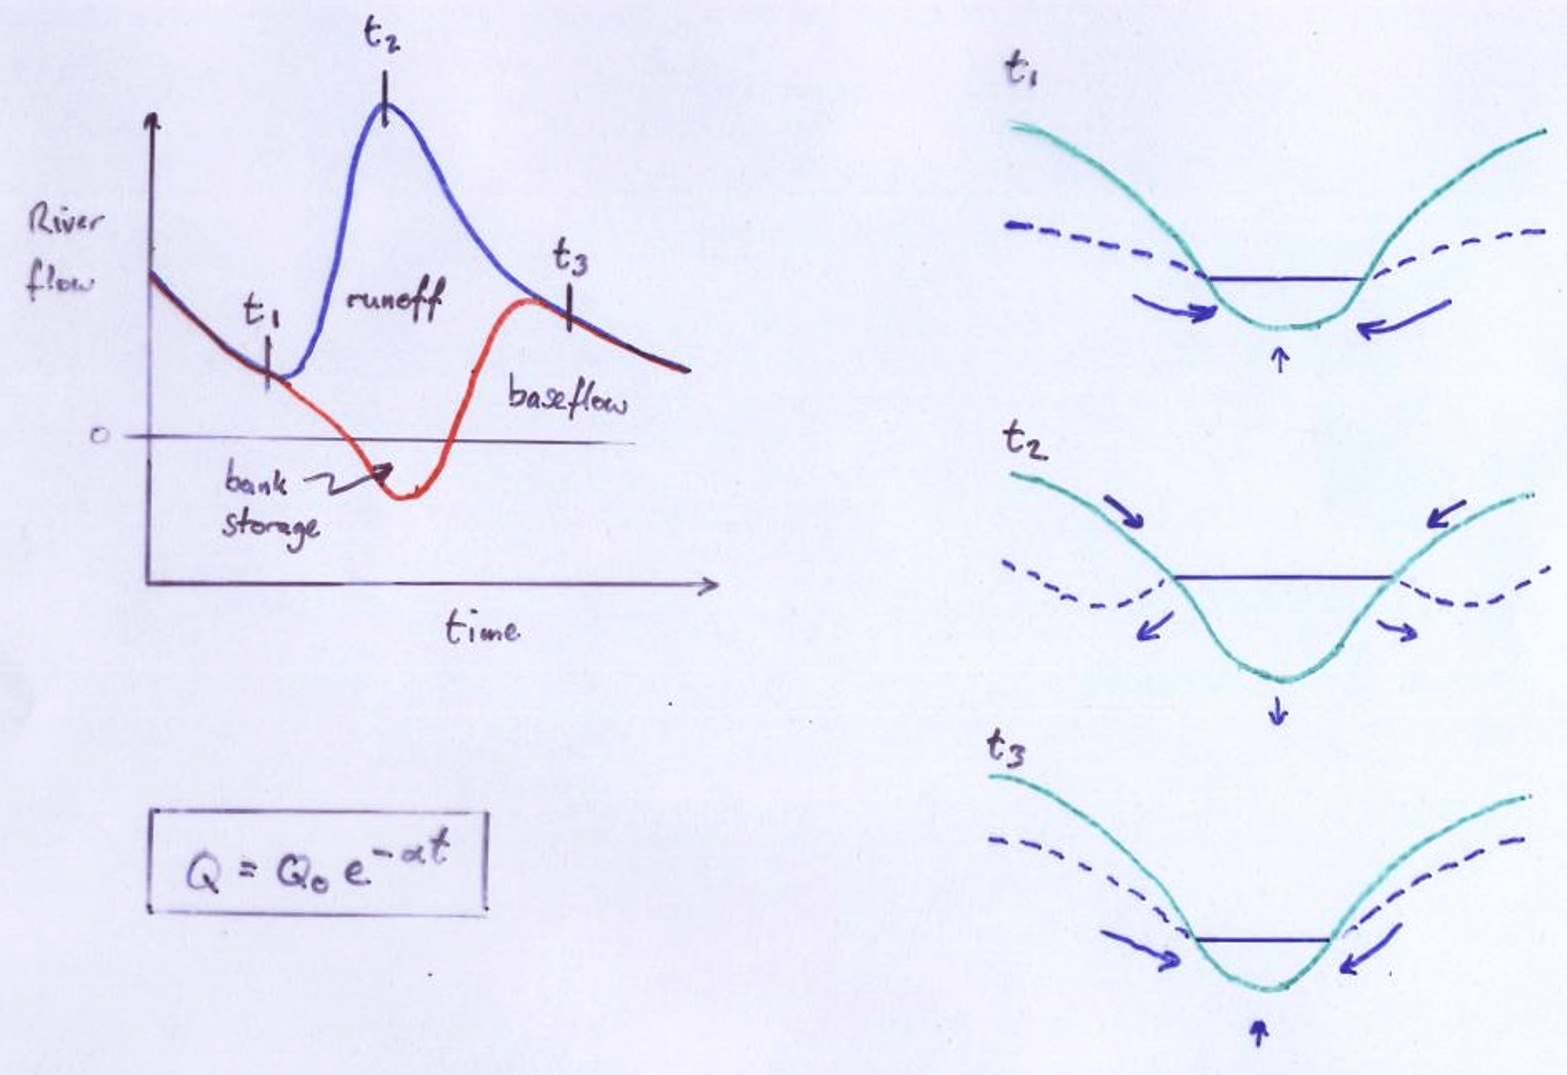 t₂
River
flow
t₁
runoff
t₃
baseflow
0
bank
storage
time
Q = Q₀ e^{-αt}
t₁
t₂
t₃